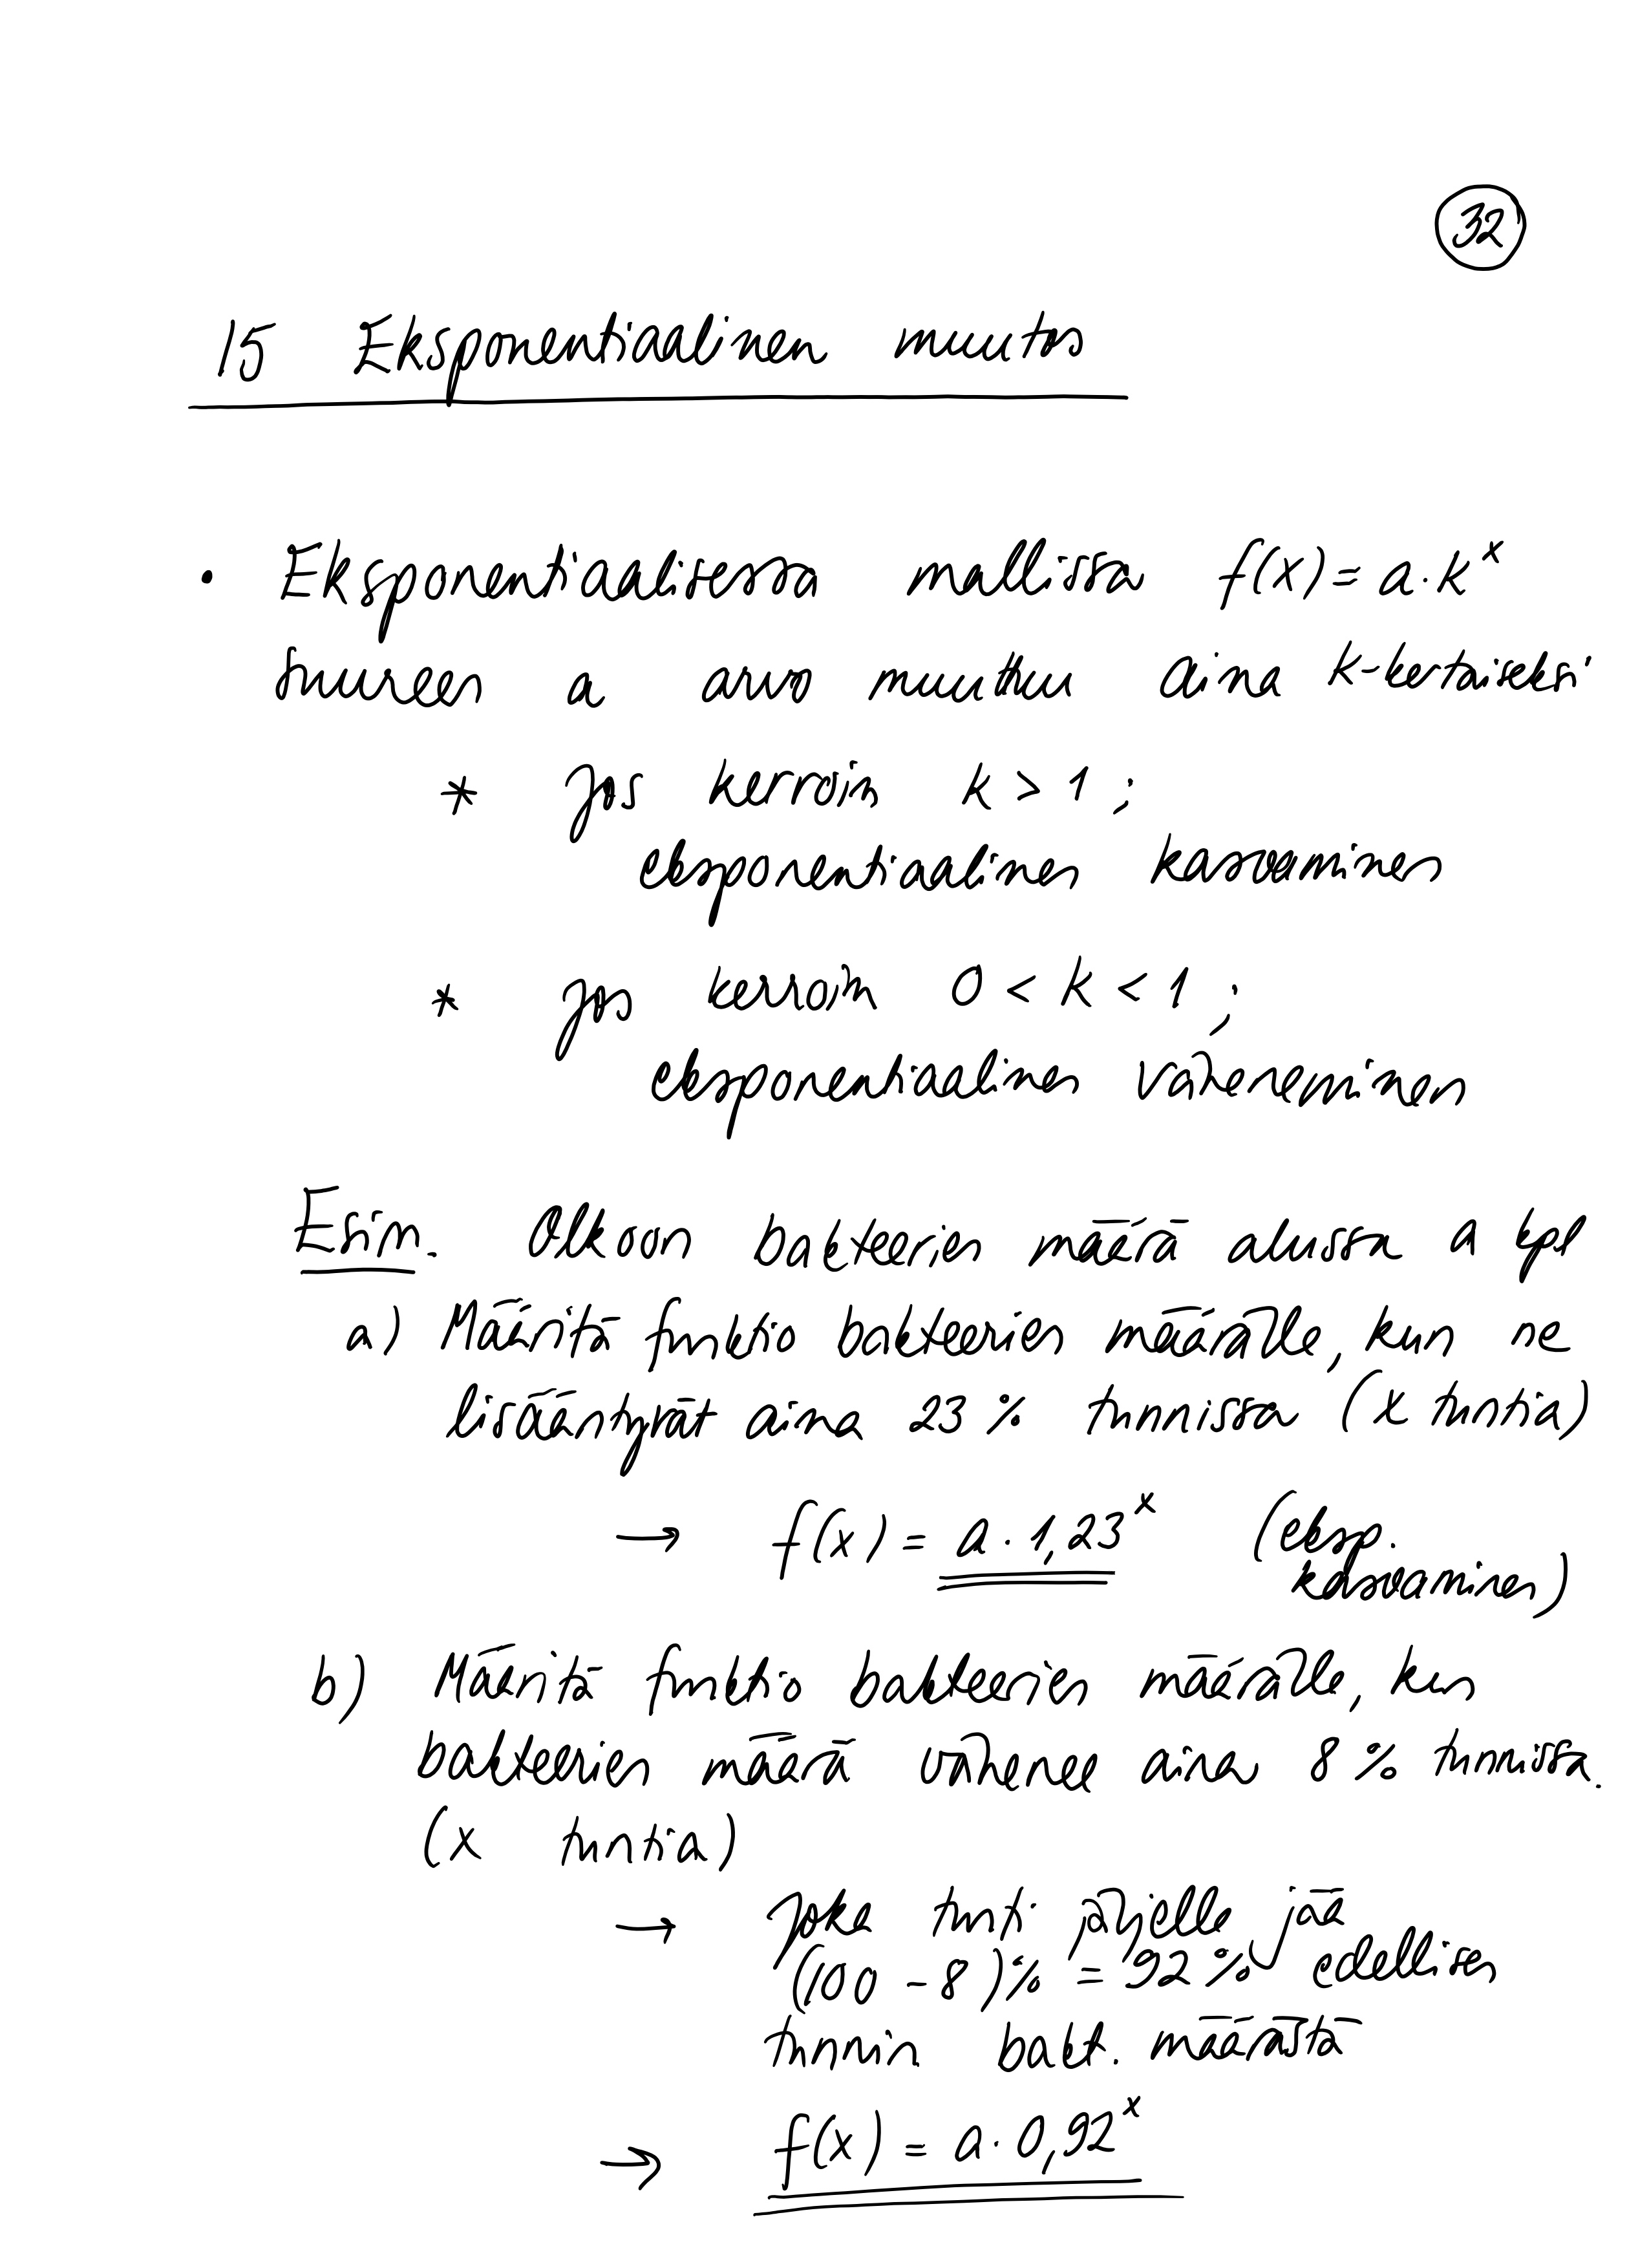 32
15 Eksponentiaalinen muutos
• Eksponentiaalisessa mallissa f(x) = a · k^x
suureen a arvo muuttuu aina k-kertaiseksi
* Jos kerroin k > 1 ;
eksponentiaalinen kasvaminen
* Jos kerroin 0 < k < 1 ;
eksponentiaalinen väheneminen
Esim. Olkoon bakteerien määrä alussa a kpl
a) Määritä funktio bakteerien määrälle, kun ne
lisääntyvät aina 23 % tunnissa (x tuntia)
→ f(x) = a · 1,23^x (eksp.
kasvaminen)
b) Määritä funktio bakteerien määrälle, kun
bakteerien määrä vähenee aina 8 % tunnissa.
(x tuntia)
→ Joka tunti jäljelle jää
(100 - 8)% = 92 % edellisen
tunnin bakt. määrästä
→ f(x) = a · 0,92^x